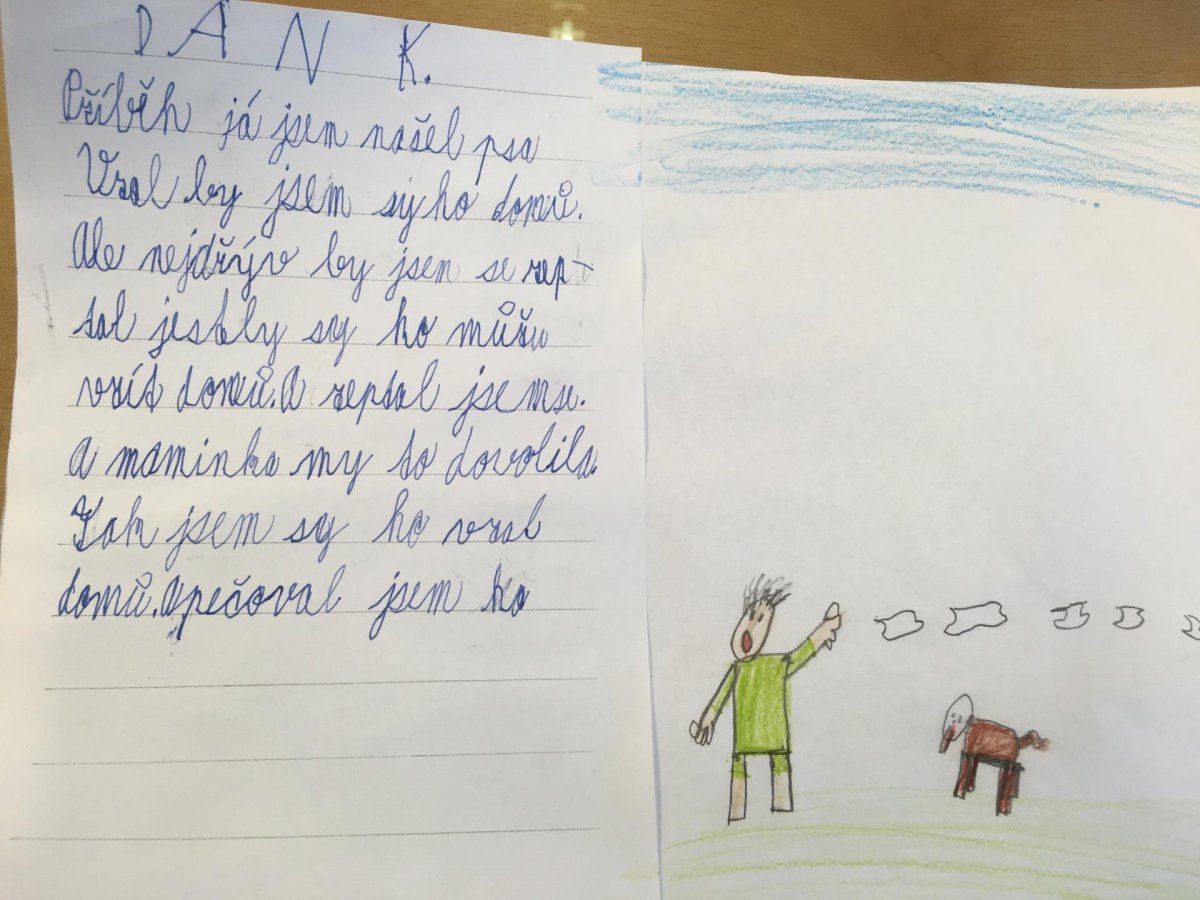 DAN K.
Příběh já jsem našel psa
Vzal by jsem sy ho domů.
Ale nejdřýv by jsem se zep-
tal jestly sy ho můžu
vzít domů. A zeptal jsem se.
A maminka my to dovolila.
Tak jsem sy ho vzal
domů. A pečoval jsem ho